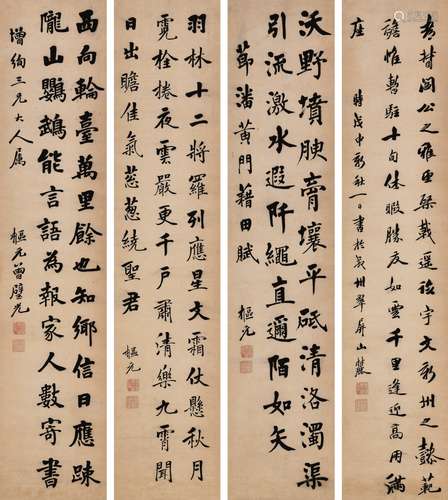 都督閻公之雅望棨戟遥臨宇文新州之懿範
襜帷暫駐十旬休暇勝友如雲千里逢迎高朋滿
座 時戊申新秋一日書於義州翠屏山麓
沃野墳腴膏壤平砥清洛濁渠
引流激水遐阡繩直邇陌如矢
節潘黃門藉田賦 樞元
羽林十二將羅列應星文霜仗懸秋月
霓旌捲夜雲嚴更千戶肅清樂九霄聞
日出瞻佳氣蔥蔥繞聖君 樞元
西向輪臺萬里餘也知鄉信日應疎
隴山鸚鵡能言語為報家人數寄書
增絢三兄大人屬 樞元曾璧光